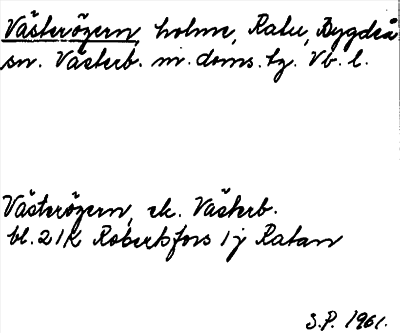 Västerögern, holme, Ratu, Bygdeå
sn. Västerb. m. doms. tg. Vb. l.
Västerögern, ek. Västerb.
bl. 21K Robertsfors 1j Ratan
S.P. 1961.